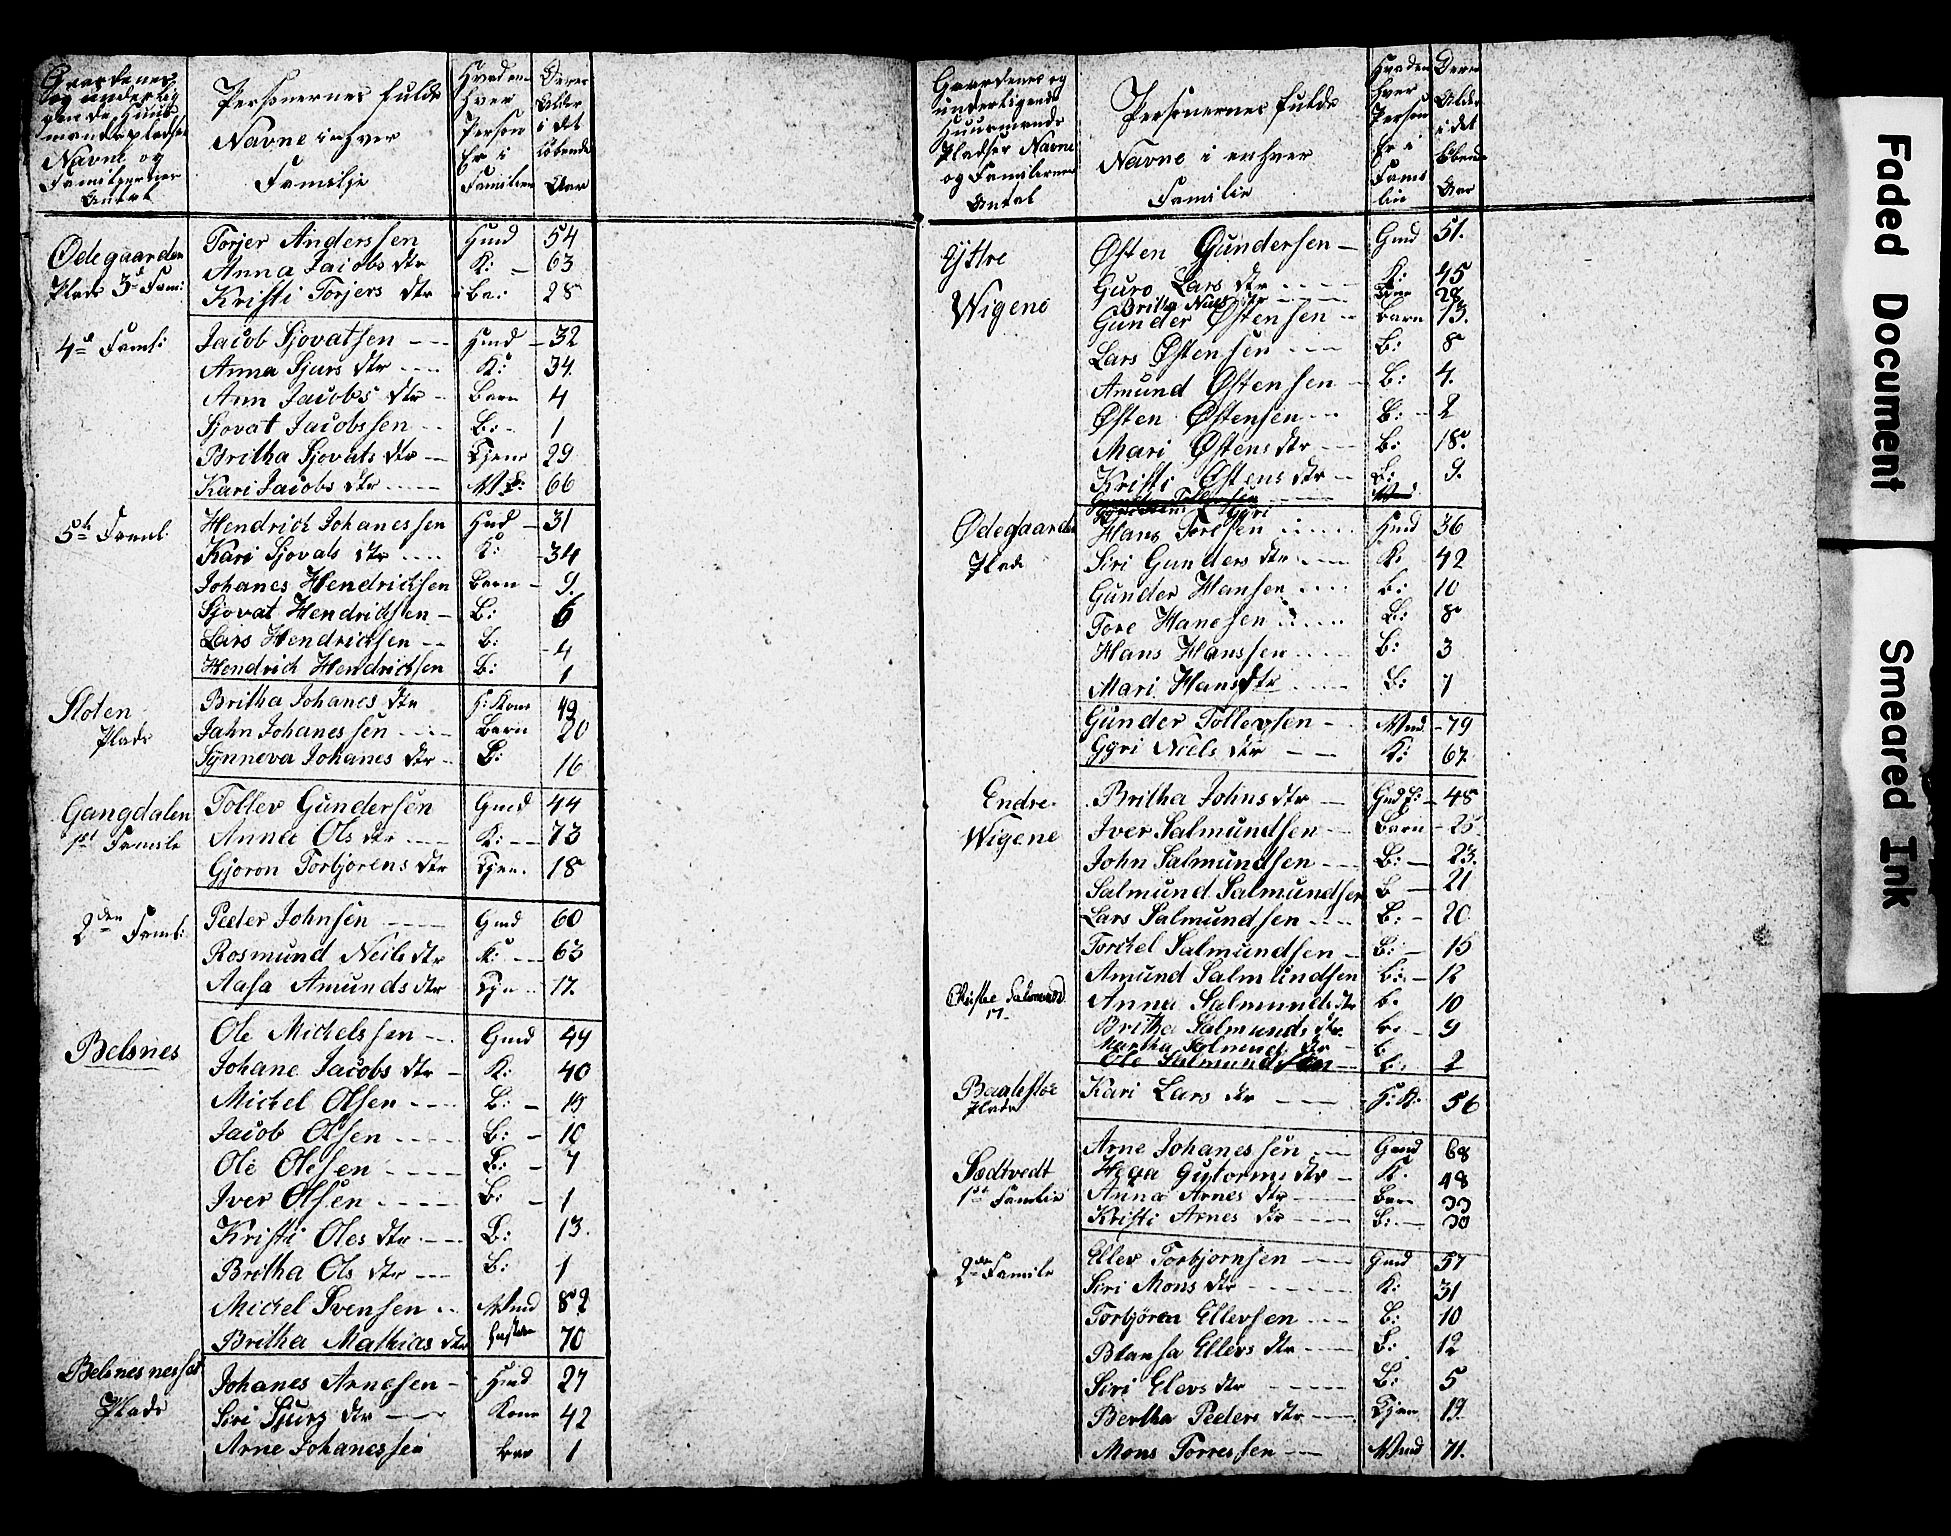 Gaardenes
og underlig
gende Huus
mandspladser
Navne og
Familjernes
Antal
Personernes fulde
Navne i enhver
Familje
Hvad en
hver
Person
Er i
Familien
Deres
Alder
i det
løbende
Aar
Ødegaarden Torjer Anderssen Hmd 54
Anna Jacobs dtr K: 63
Plads 3d Fami: Kristi Torjers dtr ba: 28
4de Famil: Jacob Sjovatsen Hmd 32
Anna Sjurs dtr K: 34
Ann Jacobs dtr Barn 4
Sjovat Jacobssen B: 1
Britha Sjovats dtr Tjene 29
Kari Jacobs dtr 66
5te Famil: Hendrich Johanessen Hmd 31
Kari Sjovats dtr K: 34
Johanes Hendrichsen Barn 9
Sjovat Hendrichsen B: 6
Lars Hendrichsen B: 4
Hendrich Hendrichsen B: 1
Sloten Britha Johanes dtr H:Kone 49
Plads Jahn Johanessen Barn 20
Synneva Johanes dtr B: 16
Gangdalen Tollev Gundersen Gmd 44
1st Famile Anna Ols dtr K: 73
Gjoron Torbjorens dtr Tjen. 18
2den Famil: Peder Johnsen Gmd 60
Rosmund Neils dtr K: 63
Aasa Amunds dtr Tjen 17
Belsnes Ole Michelssen Gmd 49
Johane Jacobs dtr K: 40
Michel Olsen B: 19
Jacob Olsen B: 10
Ole Olesen B: 7
Iver Olsen B: 1
Kristi Oles dtr B: 13
Britha Ols dtr B: 1
Michel Svensen Mmd 82
Britha Mathias dtr 70
Belsnesnesset Johanes Arnesen Hmd 27
Plads Siri Sjurs dtr Kone 42
Arne Johanessen bar 1
Gaardenes og
underligende
Huusmands
Pladser Navne
og Familiernes
Antal
Personernes fulde
Navne i enhver
Familie
Hvad en
hver
Person
Er i
Fami
lie
Deres
Alder
i det
løbende
Aar
Yttre Østen Gundersen Gmd 51.
Guro Lars dtr K: 45
Britha Niels dtr 28
Wigene Gunder Østensen Barn 13.
Lars Østensen B: 8
Amund Østensen B: 4.
Østen Østensen B: 2
Mari Østens dtr B: 18.
Kristi Østens dtr B: 9.
Ødegaarden Hans Toresen Hmd 36
Plads Siri Gunders dtr K: 42
Gunder Hansen b: 10
Tore Hanesen B: 8
Hans Hanssen B: 3
Mari Hans dtr B: 1
Gunder Tollevsen Mmd 79
Gyri Niels dtr K: 67
Endre Britha Johns dtr 48
Wigene Iver Salmundsen Barn 25
John Salmundsen B: 23.
Salmund Salmundsen B 21
Lars Salmundsen B: 20
Torchel Salmundsen B: 15
Amund Salmundsen b: 12
Anna Salmunds dtr b. 10
Christe Salmunds
17
Britha Salmunds dtr b. 9
Martha Salmund dtr b
Ole Salmundsen b. 2
Baalestøe Kari Lars dtr 56
Plads
Sædtvedt Arne Johanessen Gmd 68
Helga Gutorms dtr K. 48
1st Familie Anna Arnes dtr Barn 33
Kristi Arnes dtr B: 30
2de Famile Ellev Torbjornsen Gmd 57
Siri Mons dtr K: 31
Torbjøren Ellevsen B: 10
Blansa Ellevs dtr B: 12
Siri Elevs dtr B: 5
Bertha Peders dtr Tjen 19.
Mons Torressen Mmd 71.
Faded Document
Smeared Ink